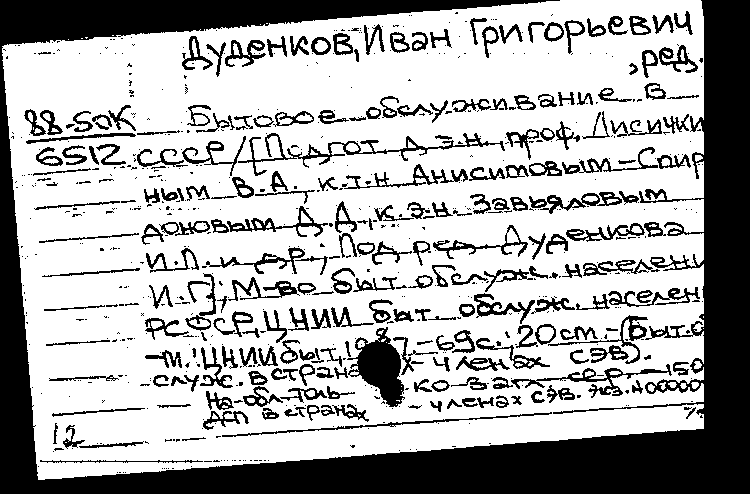 Дуденков, Иван Григорьевич
, ред.
88-50К Бытовое обслуживание в
6512 СССР / [Подгот. д.э.н., проф. Лисички
ным В.А., к.т.н. Анисимовым-Спири
доновым Д.Д., к.э.н. Завьяловым
И.П. и др.; Под ред. Дуденкова
И.Г.]; М-во быт. обслуж. населени
РСФСР, ЦНИИ быт. обслуж. населен
-М.: ЦНИИбыт, 1987. - 69с.; 20см. - (Быт. о
служ. в страна х - членах СЭВ).
На обл. толь ко загл. сер. - 150
ДСП в странах - членах СЭВ. экз. N00000
12